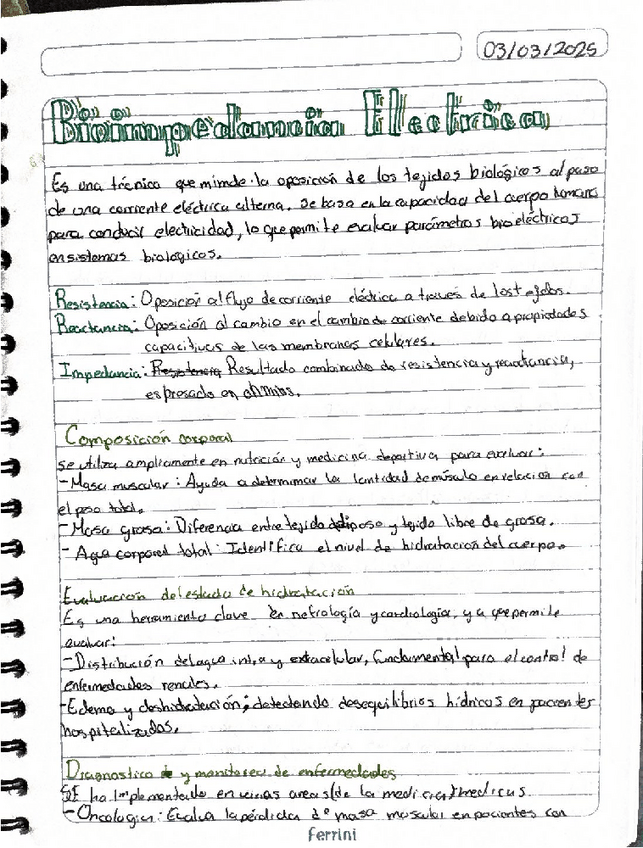 03/03/2025
Bioimpedancia Electrica
Es una técnica que mimde la oposición de los tejidos biológicos al paso
de una corriente eléctrica alterna. Se basa en la capacidad del cuerpo humano
para conducir electricidad, lo que permite evaluar parámetros bioeléctricos
en sistemas biológicos.
Resistencia: Oposición al flujo de corriente eléctrica a través de los tejidos.
Reactancia: Oposición al cambio en el cambio de corriente debido a propiedades
capacitivas de las membranas celulares.
Impedancia: Resistencia Resultado combinado de resistencia y reactancia,
espresado en ohmios.
Composición corporal
se utiliza ampliamente en nutrición y medicina deportiva para evaluar:
- Masa muscular: Ayuda a determinar la cantidad de músulo en relación con
el peso total.
- Masa grasa: Diferencia entre tejido adiposo y tejido libre de grasa.
- Agua corporal total: Identifica el nivel de hidratación del cuerpo.
Evaluación del estado de hidratación
Es una herramienta clave en nefrología y cardiología, ya que permite
evaluar:
- Distribución del agua intra y extracelular, fundamental para el control de
enfermedades renales.
- Edema y deshidratación; detectando desequilibrios hídricos en pacientes
hospitalizados.
Diagnostico de y monitoreo de enfermedades
SE ha implementado en varias areas de la
- Oncologia: Evalua la pérdida de masa muscular en pacientes con
Ferrini